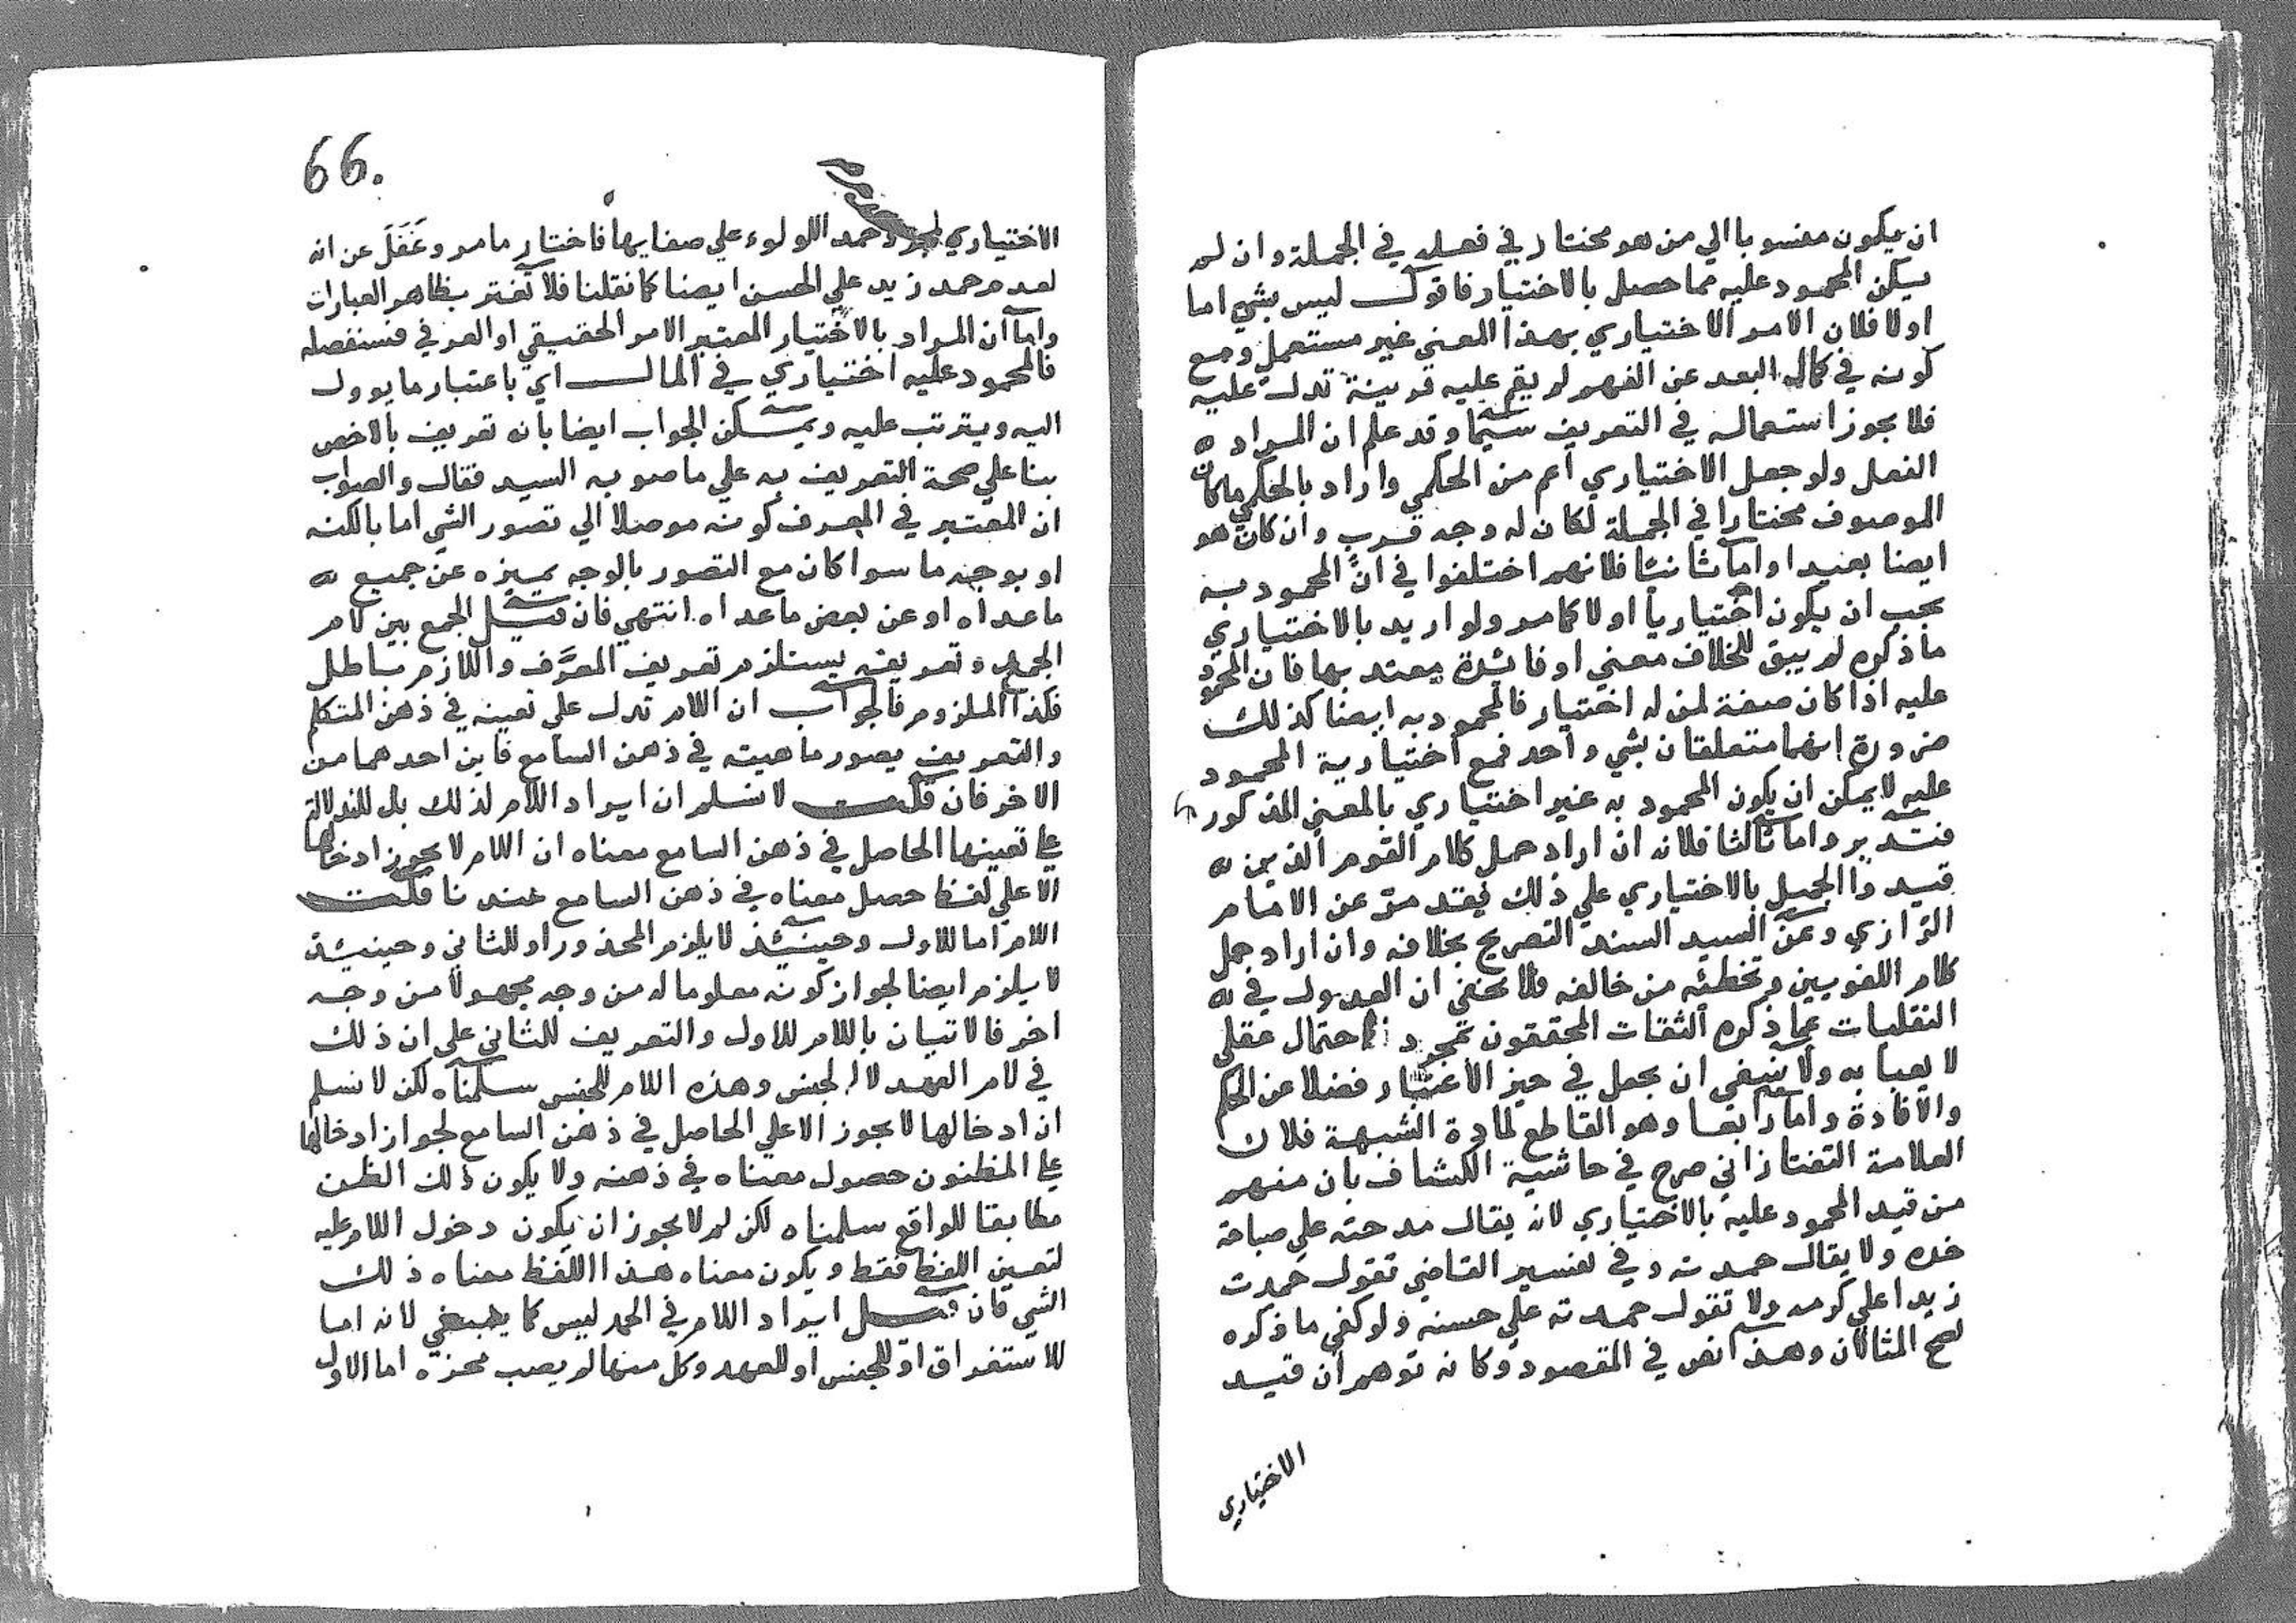 ان يكون منسوبا الي من هو مختار في فعله في الجملة وان لم
يكن المحمود عليه مما حصل بالاختيار فاقول ليس بشي اما
اولا فلان الامر الاختياري بهذا المعني غير مستعمل ومع
كونه في كمال البعد عن الفهم لم يقم عليه قرينة تدل عليه
فلا يجوز استعماله في التعريف سيما وقد علم ان المراد
الفعل ولو جعل الاختياري اعم من الحكمي واراد بالحكمي ما كان
الموصوف مختارا في الجملة لكان له وجه قرب وان كان هو
ايضا بعيدا واما ثانيا فلانهم اختلفوا في ان المحمود به
يجب ان يكون اختياريا او لا كما مر ولو اريد بالاختياري
ما ذكره لم يبق للخلاف معني او فائدة يعتد بها فان المحمود
عليه اذا كان صفة لمن له اختيار فالمحمود به ايضا كذلك
ضرورة انهما متعلقان بشي واحد فمع اختيارية المحمود
عليه لا يمكن ان يكون المحمود به غير اختياري بالمعني المذكور
فتدبر واما ثالثا فلانه ان اراد حمل كلام القوم الذين
قيدوا الجميل بالاختياري علي ذلك فقد مر عن الامام
الرازي وعن السيد السند التصريح بخلافه وان اراد حمل
كلام اللغويين وتخطئه من خالفه فلا يخفي ان العدول في
النقليات عما ذكره الثقات المحققون بمجرد احتمال عقلي
لا يعبا به ولا ينبغي ان يجعل في حيز الاعتبار فضلا عن الحكم
والافادة واما رابعا وهو القاطع لمادة الشبهة فلان
العلامة التفتازاني صرح في حاشية الكشاف بان منهم
من قيد المحمود عليه بالاختياري لانه يقال مدحته علي صباحة
خده ولا يقال حمدته وفي تفسير القاضي تقول حمدت
زيدا علي كرمه ولا تقول حمدته علي حسنه ولو كفي ما ذكره
لصح المثالان وهذا نص في المقصود وكانه توهم ان قيد
الاختياري
66.
الاختياري حمد اللولوء علي صفايها فاختار ما مر وغَفَلَ عن انه
لعدم حمد زيد علي الحسن ايضا كما نقلنا فلا تغتر بظاهر العبارات
واما ان المراد بالاختيار المعتبر الامر الحقيقي او العرفي فسنفصله
فالمحمود عليه اختياري في المال اي باعتبار ما يوول
اليه ويترتب عليه ويمكن الجواب ايضا بانه تعريف بالاخص
بنا علي صحة التعريف به علي ما صوبه السيد فقال والصواب
ان المعتبر في المعرف كونه موصلا الي تصور الشي اما بالكنه
او بوجه ما سوا كان مع التصور بالوجه يميزه عن جميع
ما عداه او عن بعض ما عداه انتهي فان قيل الجمع بين لام
الحمد وتعريفه يستلزم تعريف المعرَّف واللازم باطل
فكذا الملزوم فالجواب ان اللام تدل علي تعينه في ذهن المتكلم
والتعريف يصور ماهيته في ذهن السامع فاين احدهما من
الاخر فان قلت لا نسلم ان ايراد اللام لذلك بل للدلالة
علي تعينها الحاصل في ذهن السامع معناه ان اللام لا يجوز ادخالها
الا علي لفظ حصل معناه في ذهن السامع عندنا قلت
اللام اما للاول وحينئذ لا يلزم المحذور او للثاني وحينئذ
لا يلزم ايضا لجواز كونه معلوما له من وجه مجهولا من وجه
اخر فالاتيان باللام للاول والتعريف للثاني علي ان ذلك
في لام العهد لا الجنس وهذه اللام للجنس سلمناه لكن لا نسلم
ان ادخالها لا يجوز الا علي الحاصل في ذهن السامع لجواز ادخالها
علي المظنون حصول معناه في ذهنه ولا يكون ذلك الظن
مطابقا للواقع سلمناه لكن لم لا يجوز ان يكون دخول اللام عليه
لتعيين اللفظ فقط ويكون معناه هذا اللفظ معناه ذلك
الشي فان قيل ايراد اللام في الحمد ليس كما ينبغي لانه اما
للاستغراق او للجنس او للعهد وكل منها لم يصب محزه اما الاول